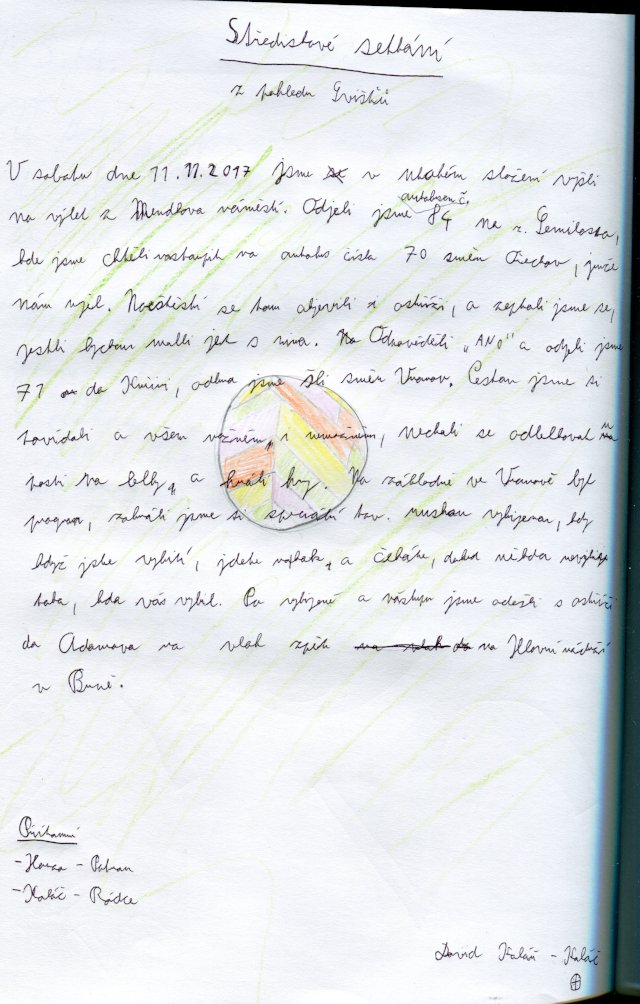 Střediskové setkání
z pohledu Gvišťů
V sobotu dne 11.11.2017 jsme v mnohém složení vyšli
na výlet z Mendlova náměstí. Odjeli jsme autobusem č. 84 na z. Semilasso,
kde jsme chtěli nastoupit na autobus čísla 70 směr Ořechov, jenže
nám ujel. Naštěstí se tam objevili ostříži, a zeptali jsme se,
jestli bychom mohli jet s nima. Odpověděli „ANO" a odjeli jsme
71 do Kninic, odkud jsme šli směr Vranov. Cestou jsme si
povídali o všem možném, i nemožném, nechali se odlollovat
na lolly, a hráli hry. Na základně ve Vranově byl
program, zahráli jsme si speciální vybíjenou, kdy
když jste vybití, jdete a čekáte, dokud někdo nevybije
toho, kdo vás vybil. Po vybíjené a nástupu jsme odešli s ostříži
do Adamova na vlak zpět na vlak do na Hlavní nádraží
v Brně.
Přítomní
- Patran
- Koláč - Rádce
David Koláč - Koláč